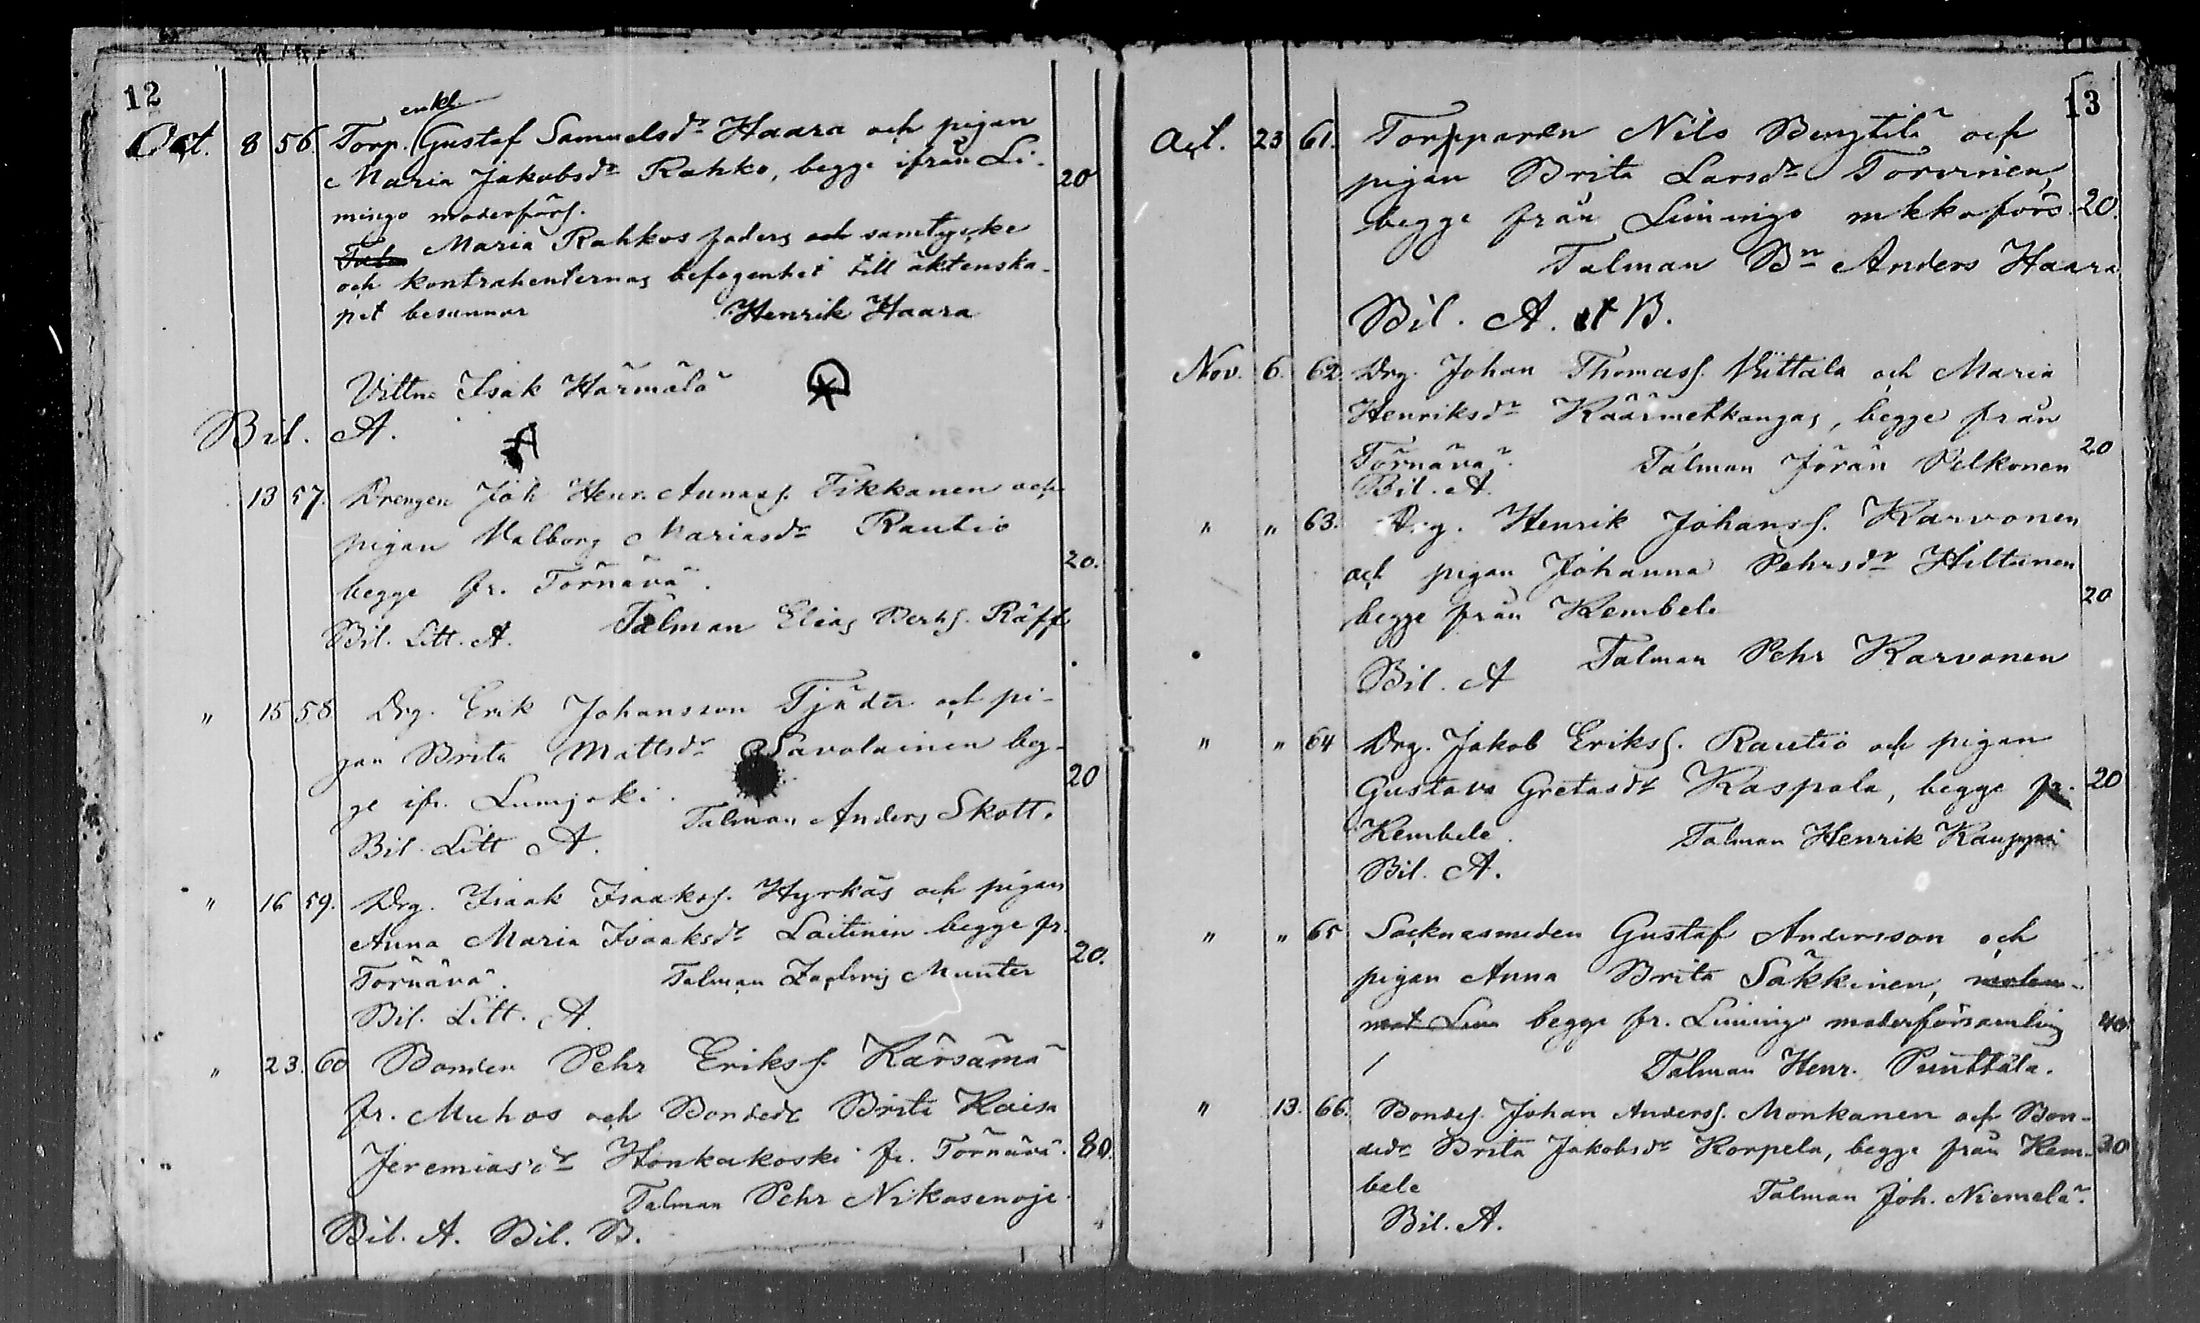 12
enkl.
Oct. 8 56. Torp. Gustaf Samuelsdr Haara och pigan
Maria Jakobsdr Rahko, begge ifrån Li-
mingo moderförs. 20
Maria Rahkos faders och samtycke
och kontrahenternas befogenhet till äktenska-
pet besannar Henrik Haara
Vittne Isak Härmälä
Bil. A.
13 57. Drengen Joh Henr. Annass. Tikkanen och
pigan Valborg Mariasdr Rautio
begge fr. Törnävä. 20.
Bil. Litt. A. Talman Elias Räff
" 15 58 Drg. Erik Johansson Tjäder och pi-
gan Brita Mattsdr Savolainen beg-
ge ifr. Lumjoki. 20
Talman Anders Skott.
Bil. Litt A.
" 16 59. Drg. Isaak Isaakss. Hyrkäs och pigan
Anna Maria Isaaksdr Laitinen begge fr.
Törnävä. Talman Munter 20.
Bil. Litt. A
" 23. 60 Bonden Pehr Erikss. Kärsämä
fr. Muhos och Bondedr Brita Kaisa
Jeremiasdr Honkakoski fr. Törnävä. 80.
Talman Pehr Nikasenoja
Bil. A. Bil. B.
13
Oct. 23 61. Torpparen Nils och
pigan Brita Larsdr Torvinen,
begge från Limingo mkkoförs. 20.
Talman Bn Anders Haara
Bil. A. et B.
Nov. 6. 62. Drg. Johan Thomass. Niittala och Maria
Henriksdr Käärmekkangas, begge från
Törnävä. Talman Jöran Pelkonen 20
Bil. A.
" " 63. Drg. Henrik Johanss. Karvonen
och pigan Johanna Pehrsdr Hiltunen
begge från Kembele 20
Talman Pehr Karvonen
Bil. A
" " 64 Drg. Jakob Erikss. Rautio och pigan
Gustava Gretasdr Kaspala, begge fr. 20
Kembele. Talman Henrik Kauppi
Bil. A.
" " 65 Socknesmeden Gustaf Andersson och
pigan Anna Brita Säkkinen,
begge fr. Liming moderförsamling 40
Talman Henr. Punttala.
" 13. 66. Bondes. Johan Anderss. Monkanen och Bon-
dedr Brita Jakobsdr Korpela, begge från Kem- 20
bele Talman Joh. Niemelä.
Bil. A.